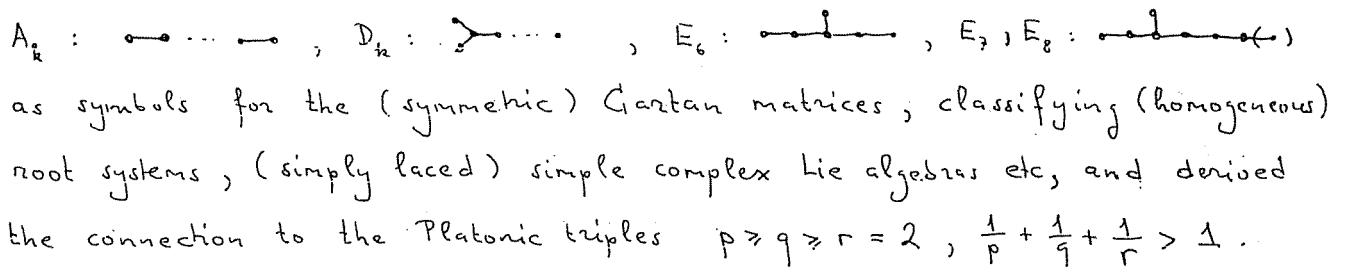 A_k : ... , D_k : ... , E_6 : , E_7 , E_8 : ( )
as symbols for the (symmetric) Cartan matrices, classifying (homogeneous)
root systems, (simply laced) simple complex Lie algebras etc, and derived
the connection to the Platonic triples p ⩾ q ⩾ r = 2 , 1/p + 1/q + 1/r > 1 .